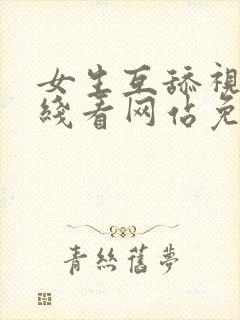 女生互舔視
綫看网佔免
青絲舊夢